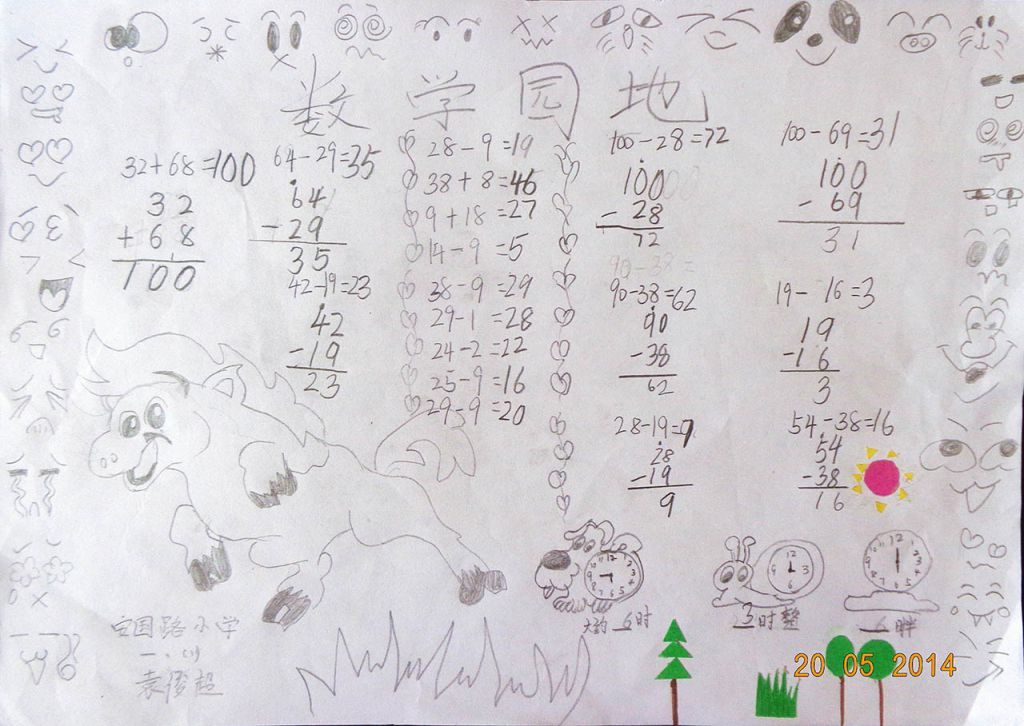 数学园地
32+68=100
32
+68
100
64-29=35
64
-29
35
42-19=23
42
-19
23
28-9=19
38+8=46
9+18=27
14-9=5
38-9=29
29-1=28
24-2=22
25-9=16
29-9=20
100-28=72
100
-28
72
90-38=
90-38=62
90
-38
62
28-19=9
28
-19
9
100-69=31
100
-69
31
19-16=3
19
-16
3
54-38=16
54
-38
16
大约 6时
3时整
6
安国路小学
袁俊超
20 05 2014